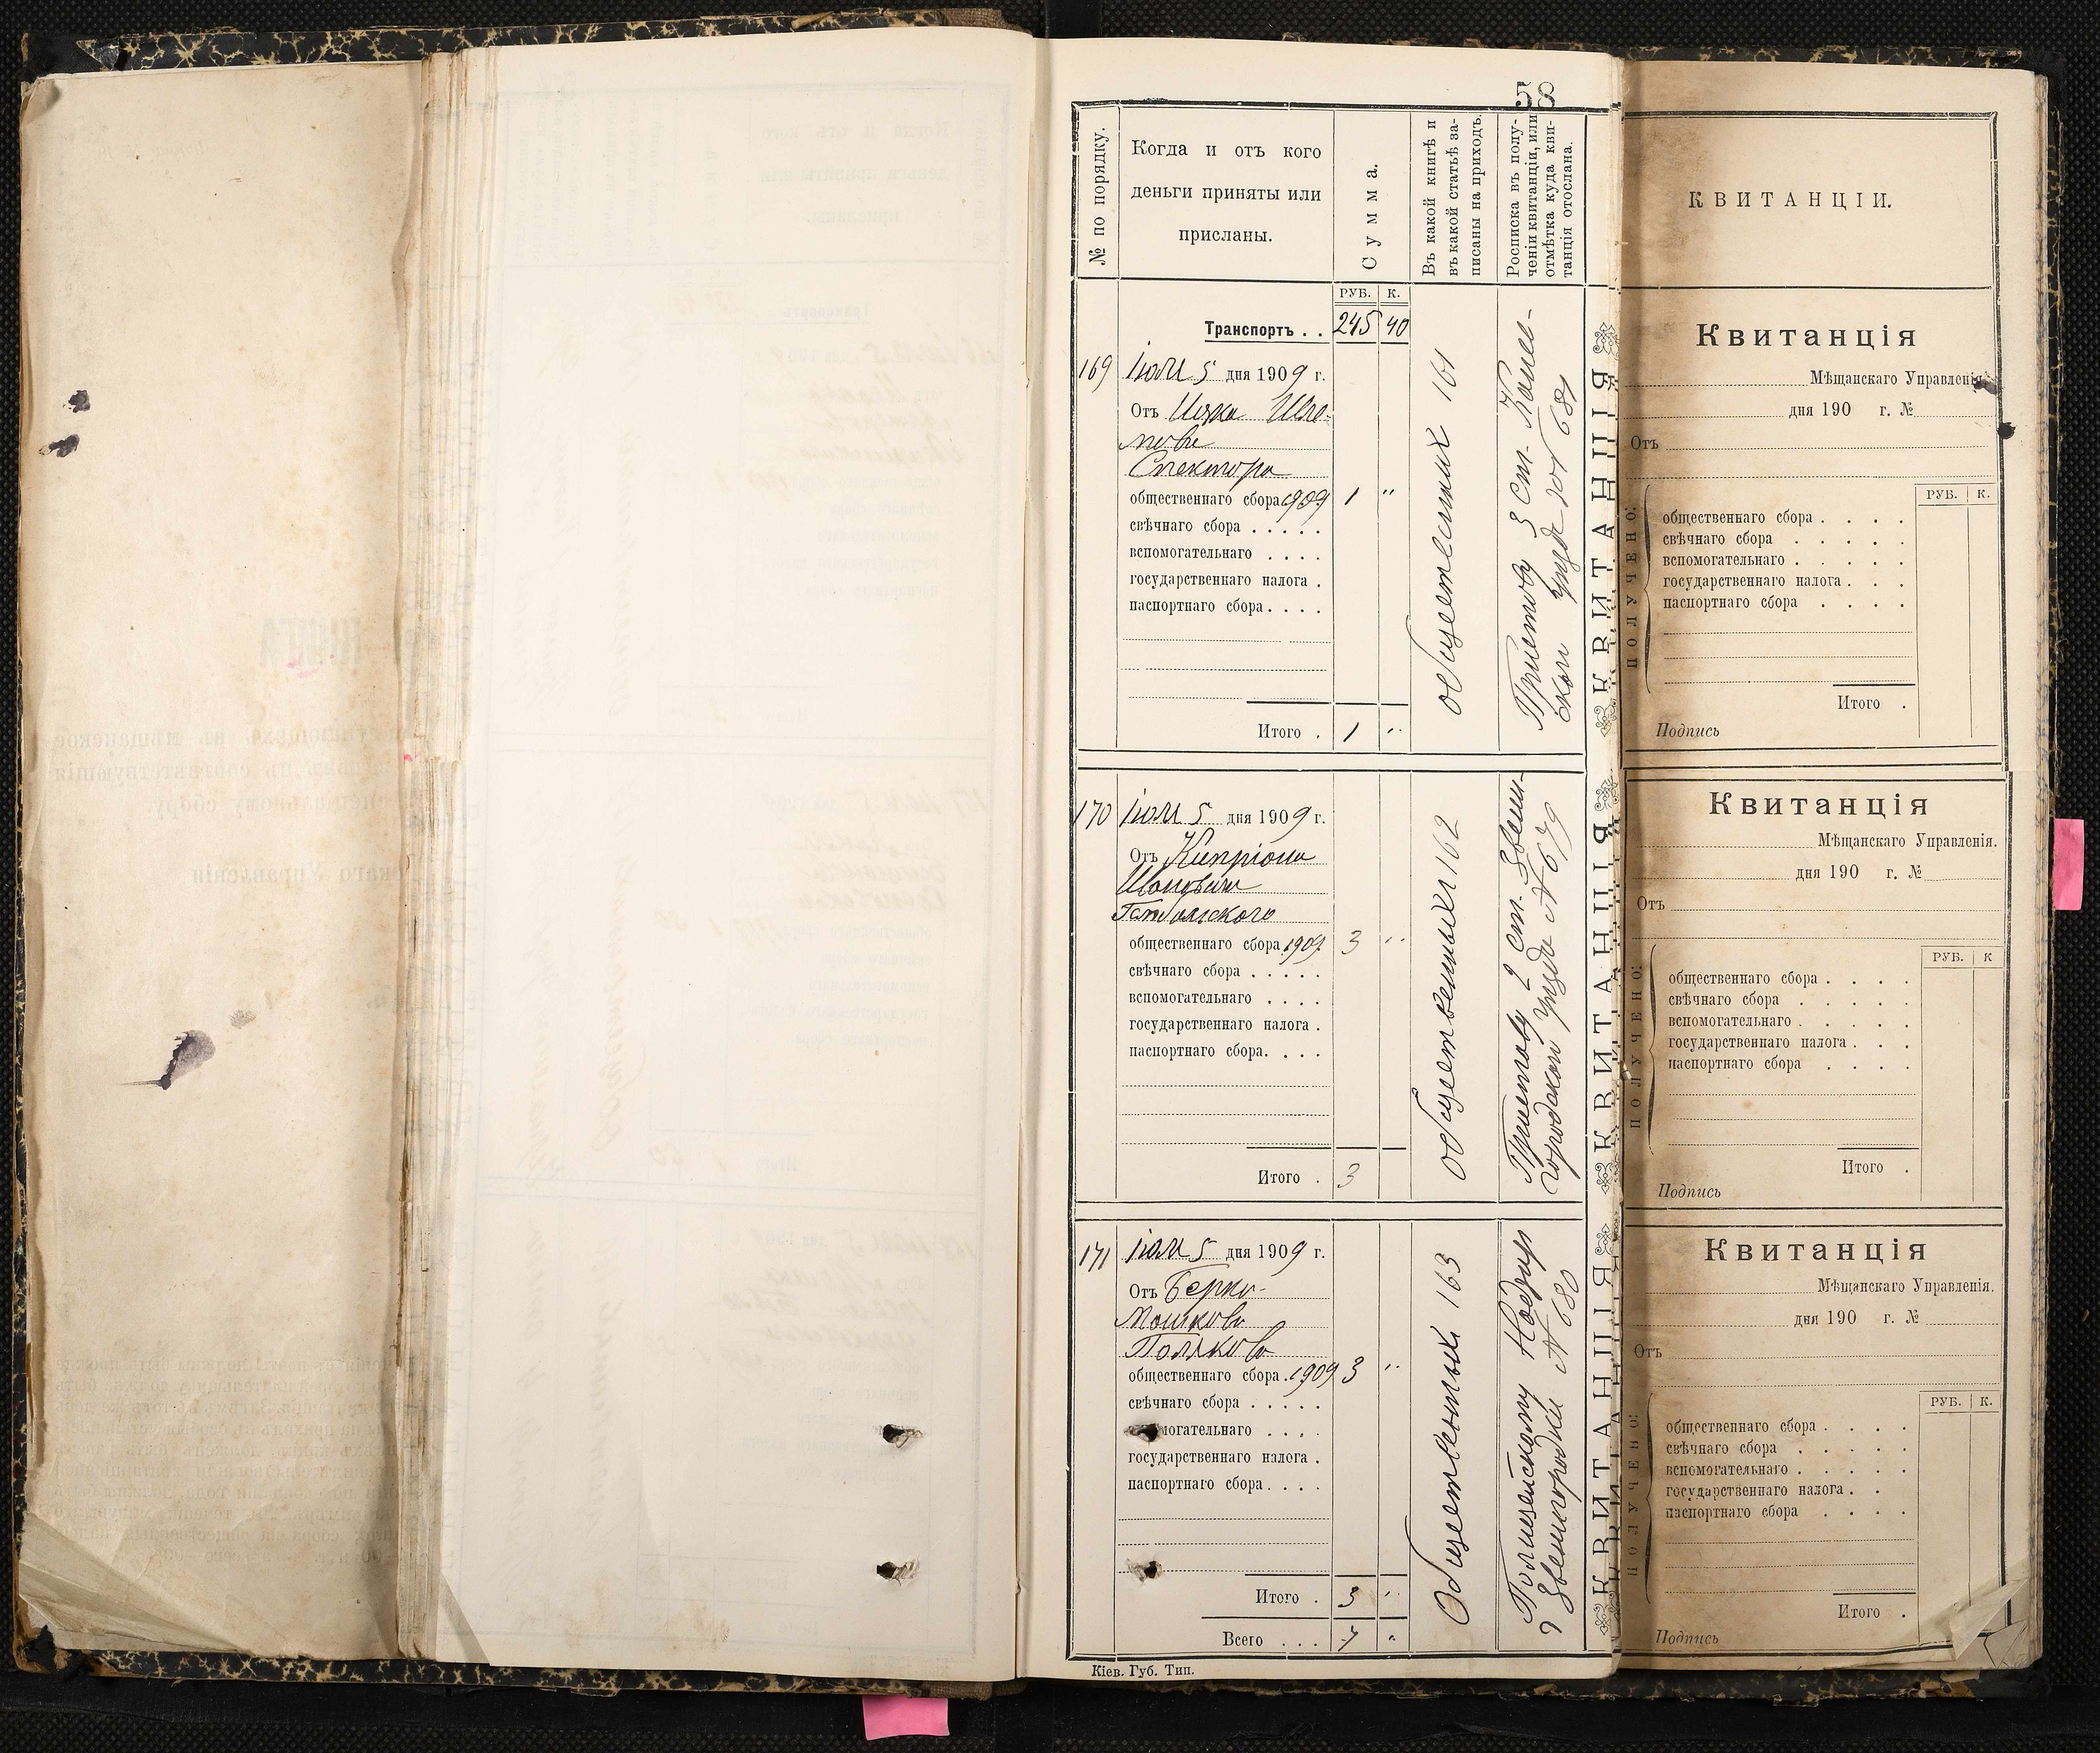 58
№ по порядку.
Когда и отъ кого
деньги приняты или
присланы.
Сумма.
Въ какой книгѣ и
въ какой статьѣ за-
писаны на приходъ.
Росписка въ полу-
ченіи квитанціи, или
отмѣтка куда кви-
танція отослана.
РУБ. К.
Транспортъ . . 245 40
169 Іюля 5 дня 1909 г.
Отъ Ицка Шло-
мова
Спектора
общественнаго сбора 1909 1 "
свѣчнаго сбора . . . . .
вспомогательнаго . . . .
государственнаго налога .
паспортнаго сбора . . . .
Итого . 1 "
общественных 161
Приставу 3 ст. Канев-
скаго уезда 681
170 Іюля 5 дня 1909 г.
Отъ Кипріана
общественнаго сбора 1909 3 "
свѣчнаго сбора . . . . .
вспомогательнаго . . . .
государственнаго налога .
паспортнаго сбора . . . .
Итого . 3
общественных 162
Приставу 2 ст. Звени-
городскаго уезда № 679
171 Іюля 5 дня 1909 г.
Отъ Берка
Мошкова
Полякова
общественнаго сбора . 1909 3 "
свѣчнаго сбора . . . . .
могательнаго . . . .
государственнаго налога .
паспортнаго сбора . . . .
Итого . 3 "
Всего . . . 7 "
Общественных 163
Полицейскому Надзир
г Звенигородки № 680
Кіев. Губ. Тип.
КВИТАНЦІЯ
КВИТАНЦІЯ
КВИТАНЦІЯ
КВИТАНЦІИ.
Квитанція
Мѣщанскаго Управленія
дня 190 г. №
Отъ
РУБ. К.
ПОЛУЧЕНО:
общественнаго сбора . . . .
свѣчнаго сбора . . . . .
вспомогательнаго . . . . .
государственнаго налога . . .
паспортнаго сбора . . . .
Итого .
Подпись
Квитанція
Мѣщанскаго Управленія.
дня 190 г. №
Отъ
РУБ. К
ПОЛУЧЕНО:
общественнаго сбора . . . .
свѣчнаго сбора . . . . .
вспомогательнаго . . . . .
государственнаго налога . . .
паспортнаго сбора . . . .
Итого .
Подпись
Квитанція
Мѣщанскаго Управленія.
дня 190 г. №
Отъ
РУБ. К.
ПОЛУЧЕНО:
общественнаго сбора . . . .
свѣчнаго сбора . . . . .
вспомогательнаго . . . . .
государственнаго налога . .
паспортнаго сбора . . . .
Итого .
Подпись